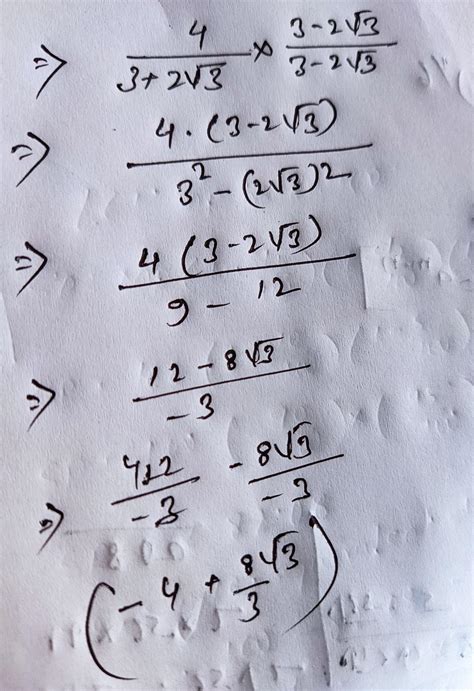 ⇒ 4/(3+2√3) × (3-2√3)/(3-2√3)
⇒ 4·(3-2√3)/(3²-(2√3)2)
⇒ 4(3-2√3)/(9-12)
⇒ (12-8√3)/-3
⇒ 12/-3 -8√3/-3
(-4+8√3/3)